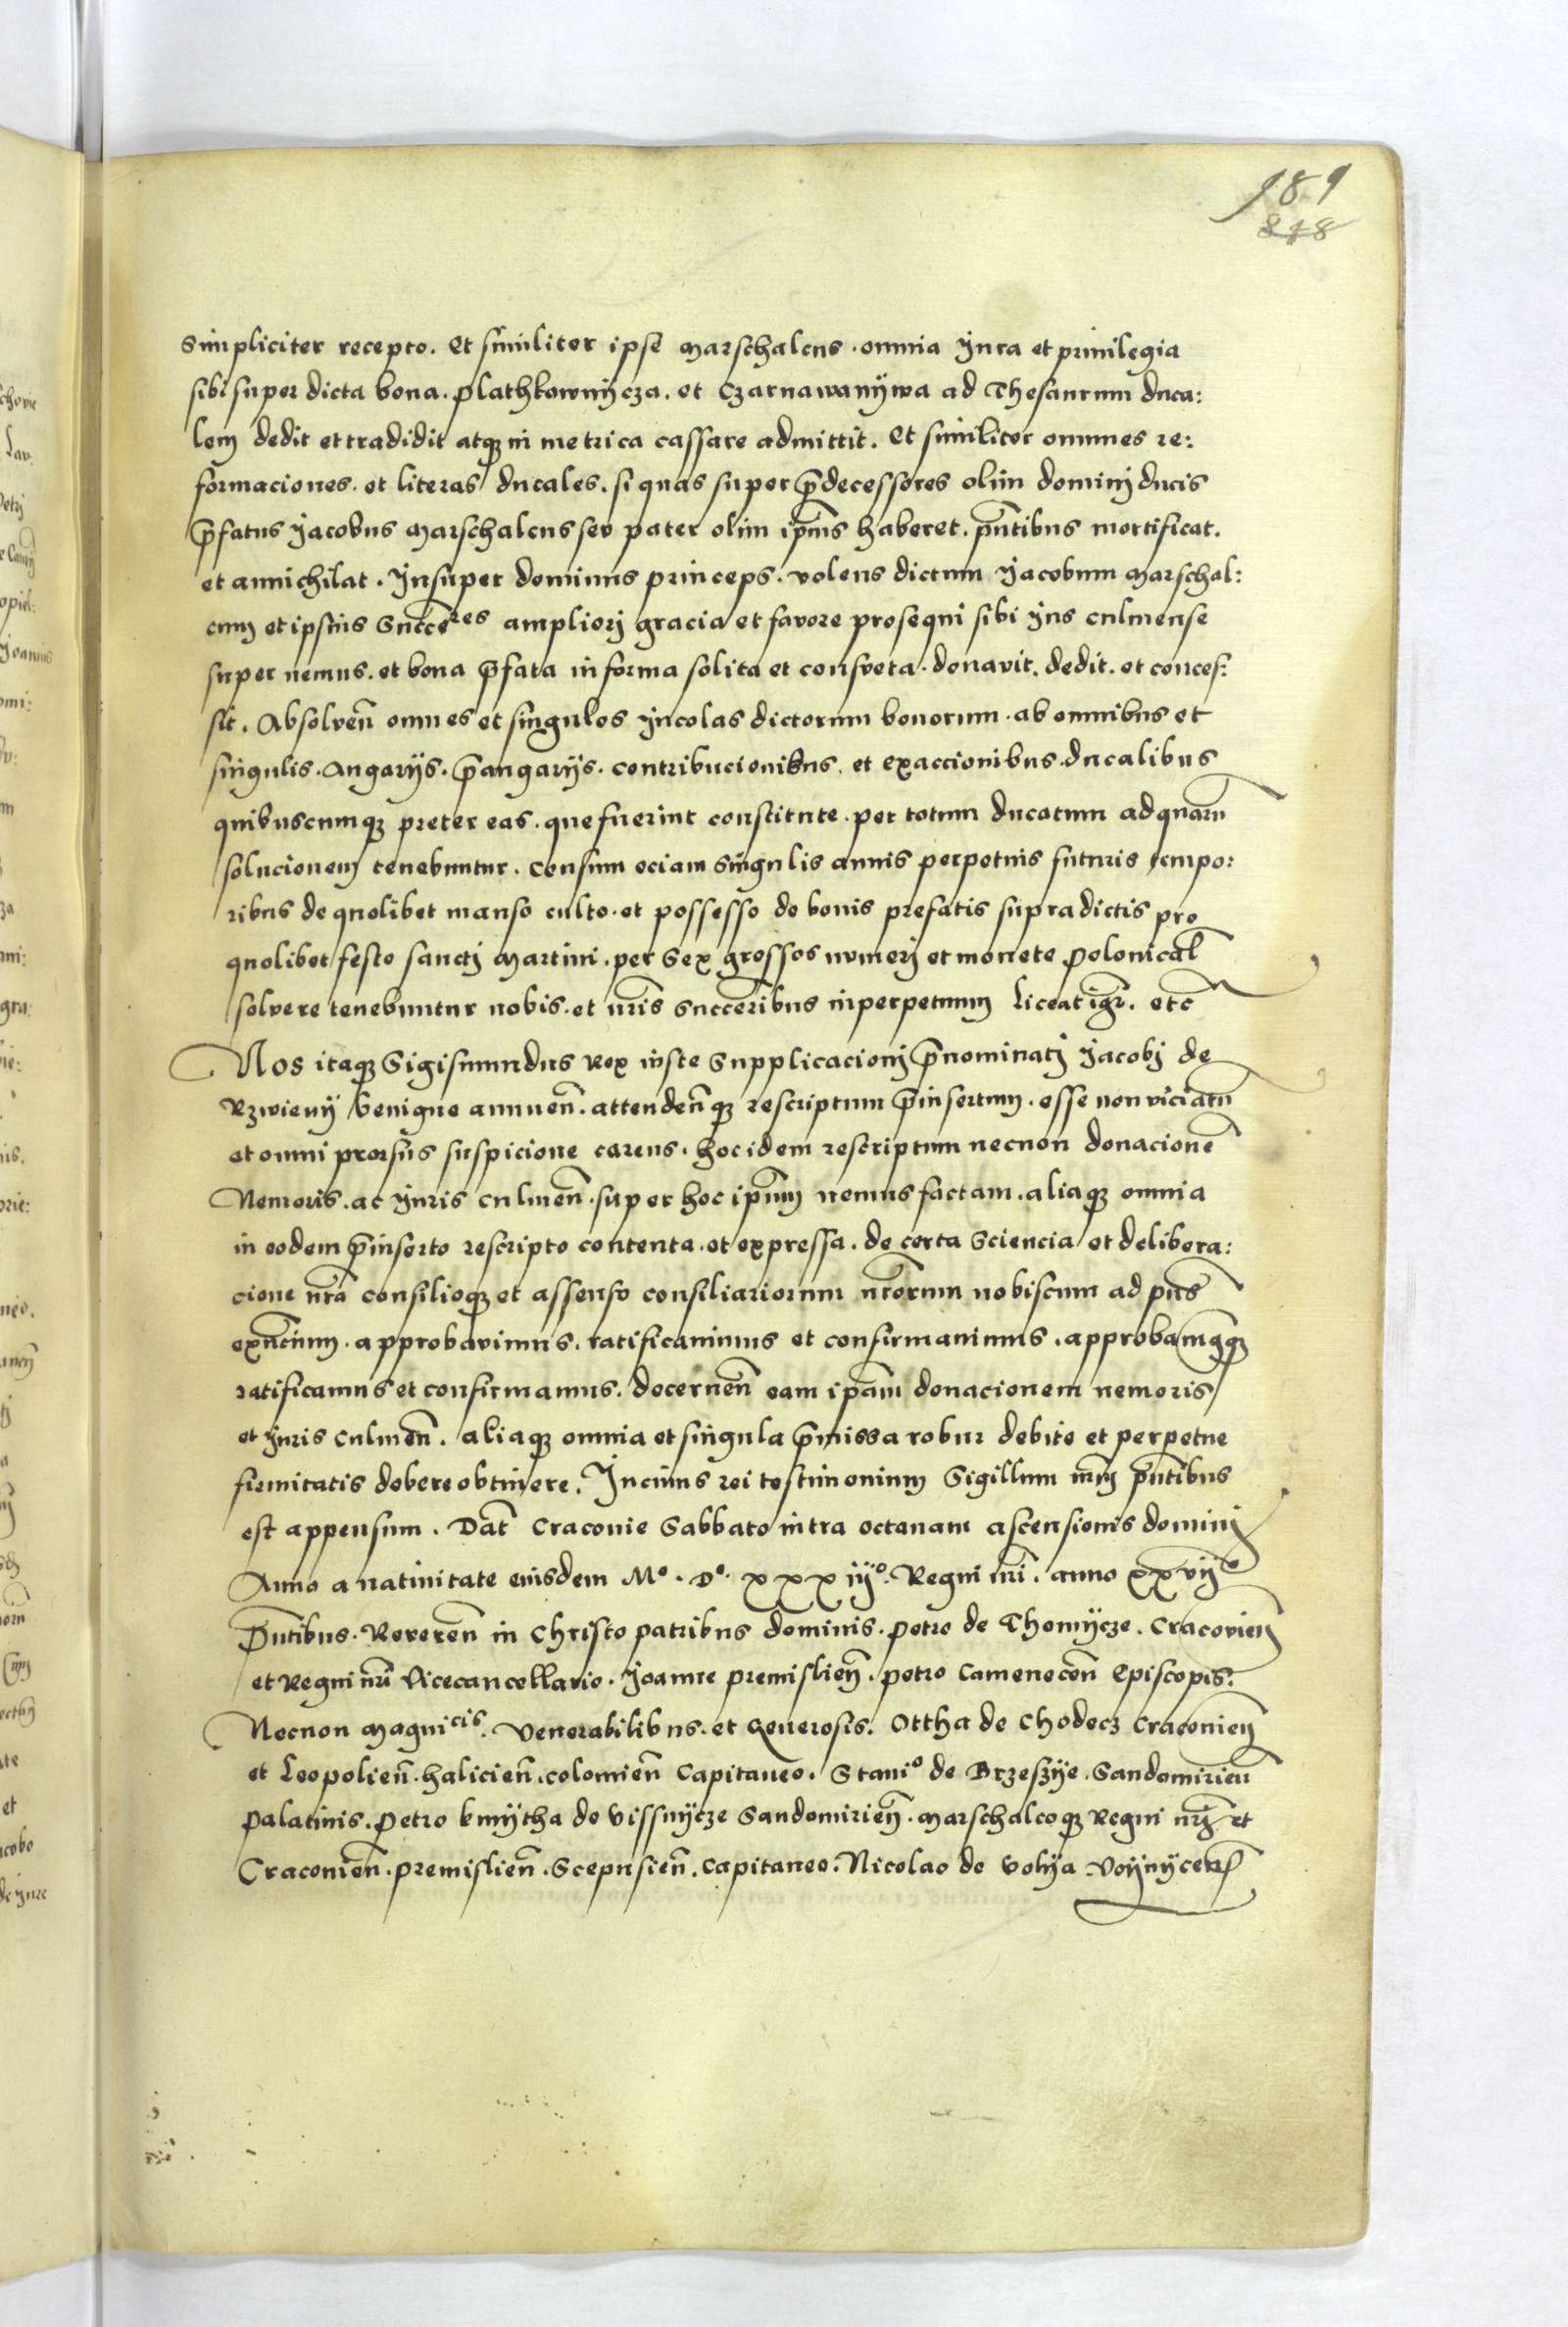 189
848
simpliciter recepto. Et similiter ipse Marschalcus. omnia Jura et privilegia
sibi super dicta bona. plathkownÿcza. et Czarnawanÿwa ad Thesaurum duca:
lem dedit et tradidit atqꝫ in metrica cassare admittit. Et similiter omnes re:
formaciones. et literas ducales. si quas super p̄decessores olim dominj ducis
p̄fatus Jacobus Marschalcus seu pater olim ip̄ius haberet. p̄ntibus mortificat.
et annichilat. Insuper dominus princeps. volens dictum Jacobum Marschal:
cum et ipsius Succēres ampliorj gracia et favore prosequi sibi Jus culmense
super nemus. et bona p̄fata in forma solita et consveta. donavit. dedit. et conces:
sit. Absolven̄ omnes et singulos Jncolas dictorum bonorum. ab omnibus et
singulis. Angarijs. p̄angarijs. contribucionibus. et exaccionibus ducalibus
quibuscumqꝫ preter eas. que fuerint constitute. per totum ducatum ad quarū
solucionem tenebuntur. Censum eciam singulis annis perpetuis futuris tempo:
ribus de quolibet manso culto. et possesso de bonis prefatis supradictis pro
quolibet festo sanctj Martini. per Sex grossos numerj et monete polonical̄
solvere tenebuntur nobis. et nr̄is Succēribus inperpetuum Liceat igr̄. etc̄
Nos itaqꝫ Sigismundus Rex iuste Supplicacionj p̄nominatj Jacobj de
Rzwienÿ benigne annuen̄. attenden̄qꝫ rescriptum p̄insertum. esse non viciatū
et omni prorsus suspicione carens. hoc idem rescriptum necnon donacionē
Nemoris. ac Juris culmen̄. super hoc ip̄um nemus factam. aliaqꝫ omnia
in eodem p̄inserto rescripto contenta. et expressa. de certa Sciencia et delibera:
cione nr̄a consilioqꝫ et assensu consiliariorum nr̄orum nobiscum ad p̄ns
exn̄cium. approbavimus. ratificavimus et confirmavimus. approbamusqꝫ
ratificamus et confirmamus. decernen̄ eam ip̄am donacionem nemoris
et Juris culmen̄. aliaqꝫ omnia et singula p̄missa robur debite et perpetue
firmitatis debere obtinere. In cuius rei testimonium Sigillum nr̄m p̄ntibus
est appensum. Dat̄ Cracovie Sabbato intra octavam ascensionis dominj
Anno a nativitate eiusdem Mº. Dº. xxxiijº. Regni nr̄i. anno xxvijº
P̄ntibus. Reveren̄ in Christo patribus dominis. petro de Thomÿcze. Cracovien̄
et Regni nr̄i Vicecancellario. Joanne premislien̄. petro Camenecen̄ Episcopis:
Necnon Magnicis. Venerabilibus. et Generosis. Ottha de Chodecz Cracovien̄
et Leopolien̄. halicien̄. colomien̄ Capitaneo. Staniº de Brzeszÿe. Sandomirien̄
palatinis. Petro kmÿtha de Vissnÿcze Sandomirien̄. Marschalcoqꝫ Regni nr̄i et
Cracovien̄. premislien̄. Scepusien̄. Capitaneo. Nicolao de Volÿa Voÿnÿcen̄